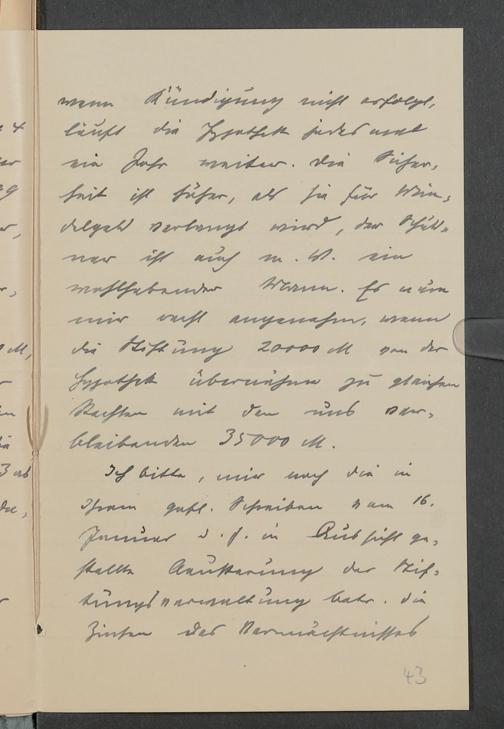 wenn Kündigung nicht erfolgt,
läuft die Hypothek jedesmal
ein Jahr weiter. Die Sicher-
heit ist höher, als sie für Mün-
delgeld verlangt wird, der Schuld-
ner ist auch m. W. ein
wohlhabender Mann. Es wäre
mir recht angenehm, wenn
die Stiftung 20000 M von der
Hypothek übernähme zu gleichen
Rechten mit den uns ver-
bleibenden 35000 M.
Ich bitte, mir noch die in
Ihrem gefl. Schreiben vom 16.
Januar d. J. in Aussicht ge-
stellte Äusserung der Stif-
tungsverwaltung betr. die
Zinsen des Vermächtnisses
43